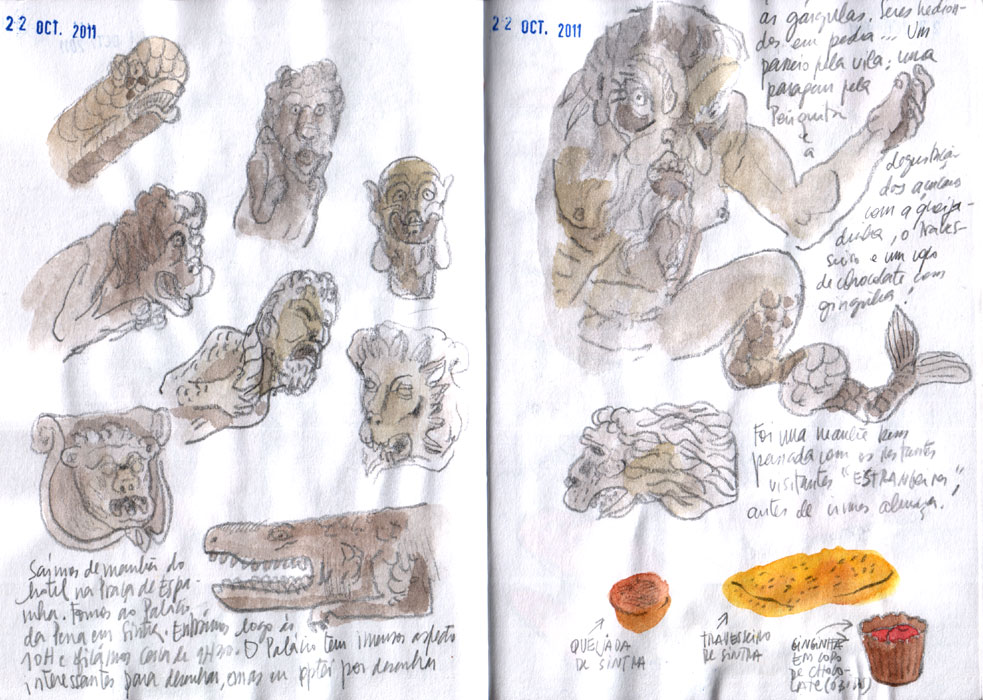 22 OCT. 2011
Saímos de manhã do
hotel na Praça de Espa-
nha. Fomos ao Palácio
da Pena em Sintra. Entrámos logo às
10H e ficámos cerca de
O Palácio tem imensos aspectos
interessantes para desenhar, mas eu optei por desenhar
22 OCT. 2011
as gárgulas. Seres hedion-
dos em pedra... Um
passeio pela vila; uma
paragem pela
Periquita
e
a
degustação
dos açúcares
com a queija-
dinha, o traves-
seiro e um copo
de chocolate com
ginginha!
Foi uma manhã bem
passada com os restantes
visitantes "ESTRANGEIROS",
antes de irmos almoçar.
QUEIJADA
DE SINTRA
TRAVESSEIRO
DE SINTRA
GINGINHA
EM COPO
DE CHOCO-
LATE